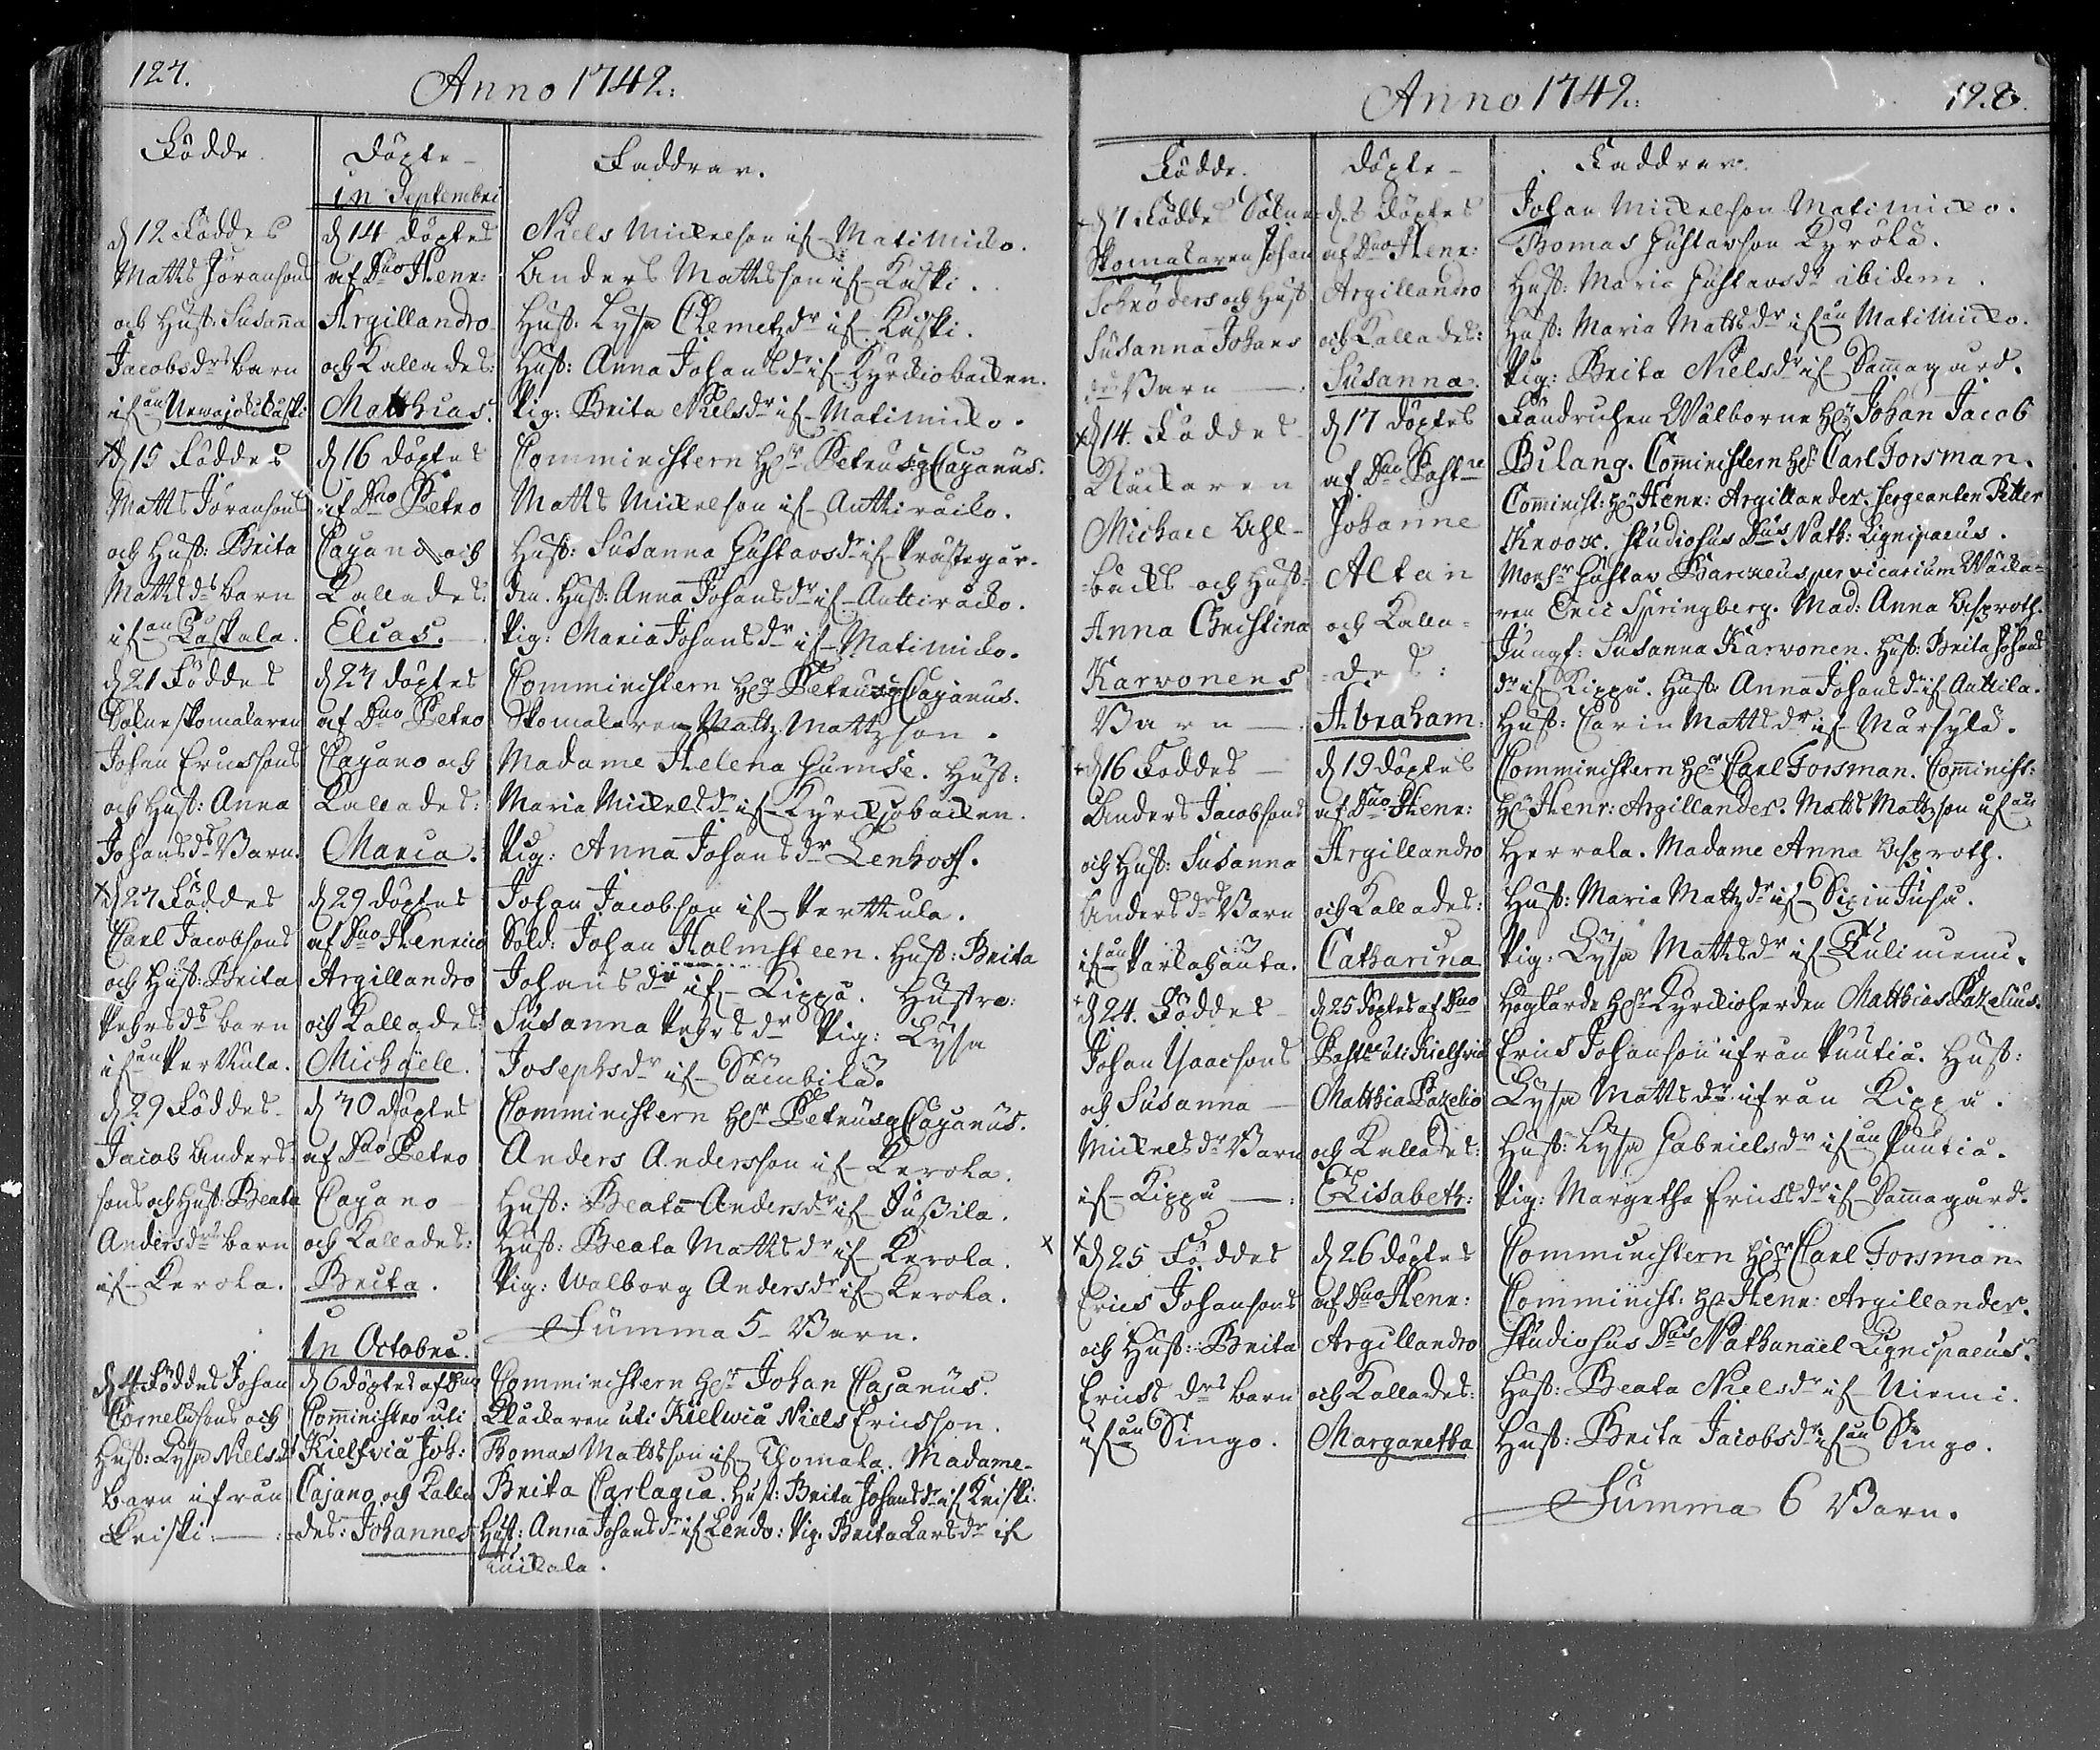 127.
Anno 1742:
Födde
Döpte
Faddrar.
in Septembri
d 12 Föddes
Matts Jöransons
och Hust: Susanna
Jacobsdrs barn
ifån
d 14 Döptes
af Dno Henr:
Argillandro
och Kallades:
Matthias.
Niels Mickelson if Matimicko.
Anders Mattsson if Kaski.
Hust: Lysa Clemetzdr if Kaski.
Hust: Anna Johansdr if Kyrckiobacken.
Pig: Brita Nielsdr if Matimicko.
d 15 Föddes
Matts Jöransons
och Hust: Brita
Mattsdrs barn
ifån Laskala.
d 16 Döptes
af Dno Petro
Cajano och
Kallades:
Elias.
Comministern Hr Petrus Cajanus.
Matts Mickelson if Anttiracko.
Hust: Susanna Gustavsdr if Prästegår-
den. Hust: Anna Johansdr if Anttiracko.
Pig: Maria Johansdr if Matimicko.
d 21 Föddes
Sokneskomakaren
Johan Ericssons
och Hust: Anna
Johansdrs Barn.
d 24 döptes
af Dno Petro
Cajano och
Kallades:
Maria.
Comministern Hr Petrus Cajanus.
Skomakaren Mattz Mattzson.
Madame Helena Gumse. Hust:
Maria Mickelsdr if Kyrckjobacken.
Pig: Anna Johansdr Lenhoff.
d 27 Föddes
Carl Jacobsons
och Hust: Brita
Pehrsdrs barn
ifån Perttula.
d 29 döptes
af Dno Henrico
Argillandro
och Kallades:
Michäel.
Johan Jacobson if Perttula.
Sold: Johan Holmsteen. Hust: Brita
Johansdr if Kippa. Hustro:
Susanna Pehrsdr Pig: Lysa
Josephsdr if Sämbilä.
d 29 Föddes
Jacob Anders-
sons och Hust: Beata
Andersdrs barn
if Kerola.
d 30 döptes
af Dno Petro
Cajano
och Kallades:
Brita.
Comministern Hr Petrus Cajanus.
Anders Andersson if Kerola.
Hust: Beata Andersdr if Jußila.
Hust: Beata Mattsdr if Kerola.
Pig: Walborg Andersdr if Kerola.
Summa 5 Barn.
In Octobri.
d 4 Föddes Johan
Cornelisons och
Hust: Lysa Nielsdrs
barn ifrån
Keiski
d 6 döptes af Dno
Comministro uti
Kielfwiä Joh:
Cajano och Kalla
des: Johannes
Comministern Hr Johan Cajanus.
Klåckaren uti Kielwiä Niels Ericsson.
Thomas Mattsson if Thomala. Madame
Brita Carlagia. Hust: Brita Johansdr if Keiski.
Hust: Anna Johansdr if Lendo: Pig: Brita Larsdr if
Kuikala.
Anno 1742:
128.
Födde.
Döpte
Faddrar.
d 7 Föddes Sokne
Skomakaren Johan
Schröders och Hust
Susanna Johans
drs Barn
d 8 Döptes
af Dno Henr:
Argillandro
och Kallades:
Susanna.
Johan Mickelson Matimicko.
Thomas Gustavson Kyrölä.
Hust: Maria Gustavsdr ibidem.
Hust: Maria Mattsdr ifån Matimicko.
Pig: Brita Nielsdr if Dammagård.
d 14. Föddes
Klåckaren
Michael Ahl-
backs och Hust:
Anna Christina
Karvonens
Barn
d 17 Döptes
af Dno Past:re
Johanne
Altan
och Kalla-
des:
Abraham.
Fändrichen Wälborne Hr Johan Jacob
Bilang. Comministern Hr Carl Forsman.
Comminist: Hr Henr: Argillander. Sergeanten Petter
Knoox. Studiosus Dns Nath: Lignipaeus.
Monsr Gustav Barckeus, per vicarium Wäcka-
ren Eric Springberg. Mad: Anna Asproth.
Jungf: Susanna Karvonen. Hust: Brita Johans
dr if Kippa. Hust: Anna Johansdr if Anttila.
Hust: Carin Mattsdr if Marsylä.
d 16 Föddes
Anders Jacobsons
och Hust: Susanna
Andersdrs Barn
ifån Parkahauta.
d 19 döptes
af Dno Henr:
Argillandro
och Kallades:
Catharina
Comministern Hr Carl Forsman. Comminist:
Hr Henr: Argillander. Matts Mattzson ifån
Herrala. Madame Anna Asproth.
Hust: Maria Mattzdr if
Pig: Lysa Mattsdr if
d 24. Föddes
Johan Ysaacsons
och Susanna
Mickelsdrs Barn
if Kippa
d 25 Döptes af Dno
Past:re uti Kielfwiä
Matthia Pazelio
och Kallades:
Elisabeth:
Höglärde Hr Kyrckioherden Matthias Pazelius.
Erics Johanson ifrån Puutia. Hust:
Lysa Mattsdr ifrån Kippa.
Hust: Lysa Gabrielsdr ifån Puutia.
Pig: Margetha Ericsdr if Dammagård.
d 25 Föddes
Erics Johansons
och Hust: Brita
Erics drs barn
ifån Singo.
d 26 döptes
af Dno Henr:
Argillandro
och Kallades:
Margaretha
Comministern Hr Carl Forsman
Comminist: Hr Henr: Argillander.
Studiosus Dns Nathanaël Lignipaeus.
Hust: Beata Nielsdr if Niemi.
Hust: Brita Jacobsdr ifån Singo.
Summa 6 Barn.